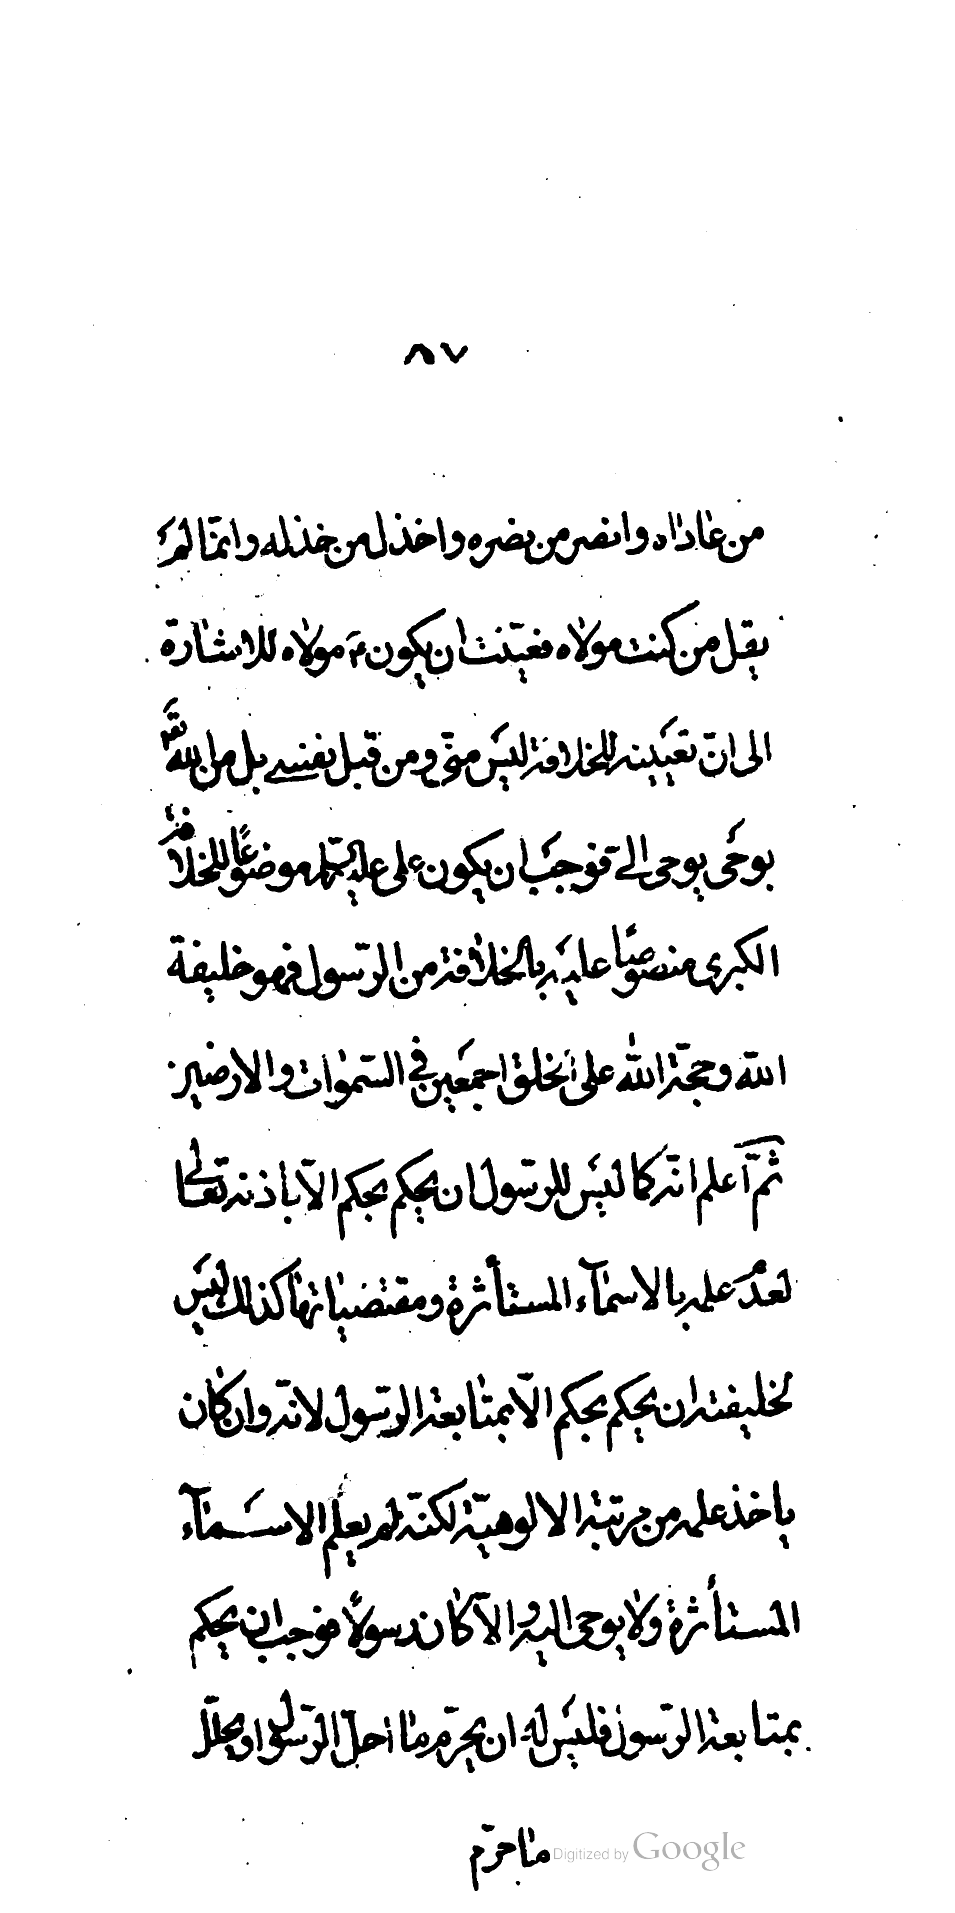 ٨٧
من عاداه وانصر من نصره واخذل من خذله وانما لم
يقل من كنت مولاه فعينت ان يكون مولاه للاشارة
الى ان تعيينه للخلافة ليس منى ومن قبل نفسى بل من الله تعالى
بوحى يوحى الى فوجب ان يكون على عليه السلام موضوعا للخلافة
الكبرى منصوصا عليه بالخلافة من الرسول فهو خليفة
الله وحجة الله على الخلق اجمعين فى السموات والارضين
ثم اعلم انه كما ليس للرسول ان يحكم بحكم الا باذنه تعالى
لعدم علمه بالاسمآء المستأثرة ومقتضياتها كذلك ليس
لخليفته ان يحكم بحكم الا بمتابعة الرسول لانه وان كان
ياخذ علمه من مرتبة الالوهية لكنه لم يعلم الاسمآء
المستأثرة ولا يوحى اليه والا كان رسولا فوجب ان يحكم
بمتابعة الرسول فليس له ان يحرم ما احل الرسول او يحلل
ما حرم
Digitized by Google